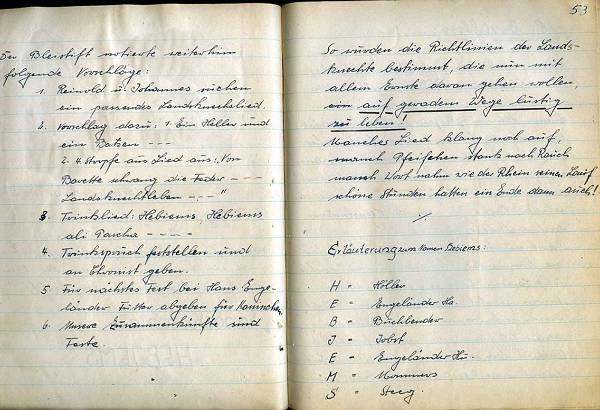 Der Bleistift notierte weiterhin
folgende Vorschläge:
1. Reinold u. Johannes suchen
ein passendes Landsknechtslied.
2. Vorschlag dazu: 1 Ein Heller und
ein Batzen ---
2. 4. Strofe aus Lied aus: "Von
Barette schwang die Feder ---
Landsknechtleben --- "
3 Trinklied: Hebiems, Hebiems
ali Pascha ----
4. Trinkspruch feststellen und
an Chronist geben.
5 Für nächstes Fest bei Hans Enge-
länder Futter abgeben für
6. Unsere Zusammenkünfte und
Feste.
53
So wurden die Richtlinien der Lands-
knechte bestimmt, die nun mit
allem Ernste daran gehen wollen,
auf geradem Wege lustig
zu leben!
Mancher Lied klang wohl auf,
manch Pfeifchen stank nach Rauch
manch Wort nahm wie der Rhein seinen Lauf
schöne Stunden hatten ein Ende dann auch!
Erläuterung zum Namen Hebiems:
H = Höller
E = Engeländer Ha.
B = Buchbender
J = Jobst
E = Engeländer Hu.
M = Mommers
S = Steeg.